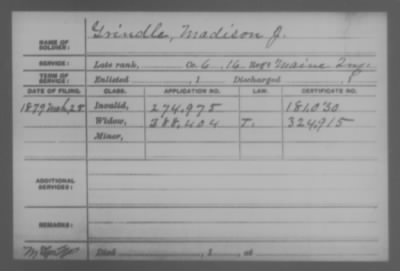 Grindle, Madison J.
NAME OF SOLDIER:
SERVICE: Late rank, Co. G, 16 Reg't Maine Inf.
TERM OF SERVICE: Enlisted , 1 Discharged , 1
DATE OF FILING. CLASS. APPLICATION NO. LAW. CERTIFICATE NO.
1879 Mch, 28 Invalid, 274,975 181,030
Widow, 388,404 T. 324,915
Minor,
ADDITIONAL SERVICES:
REMARKS:
Died , 1 , at